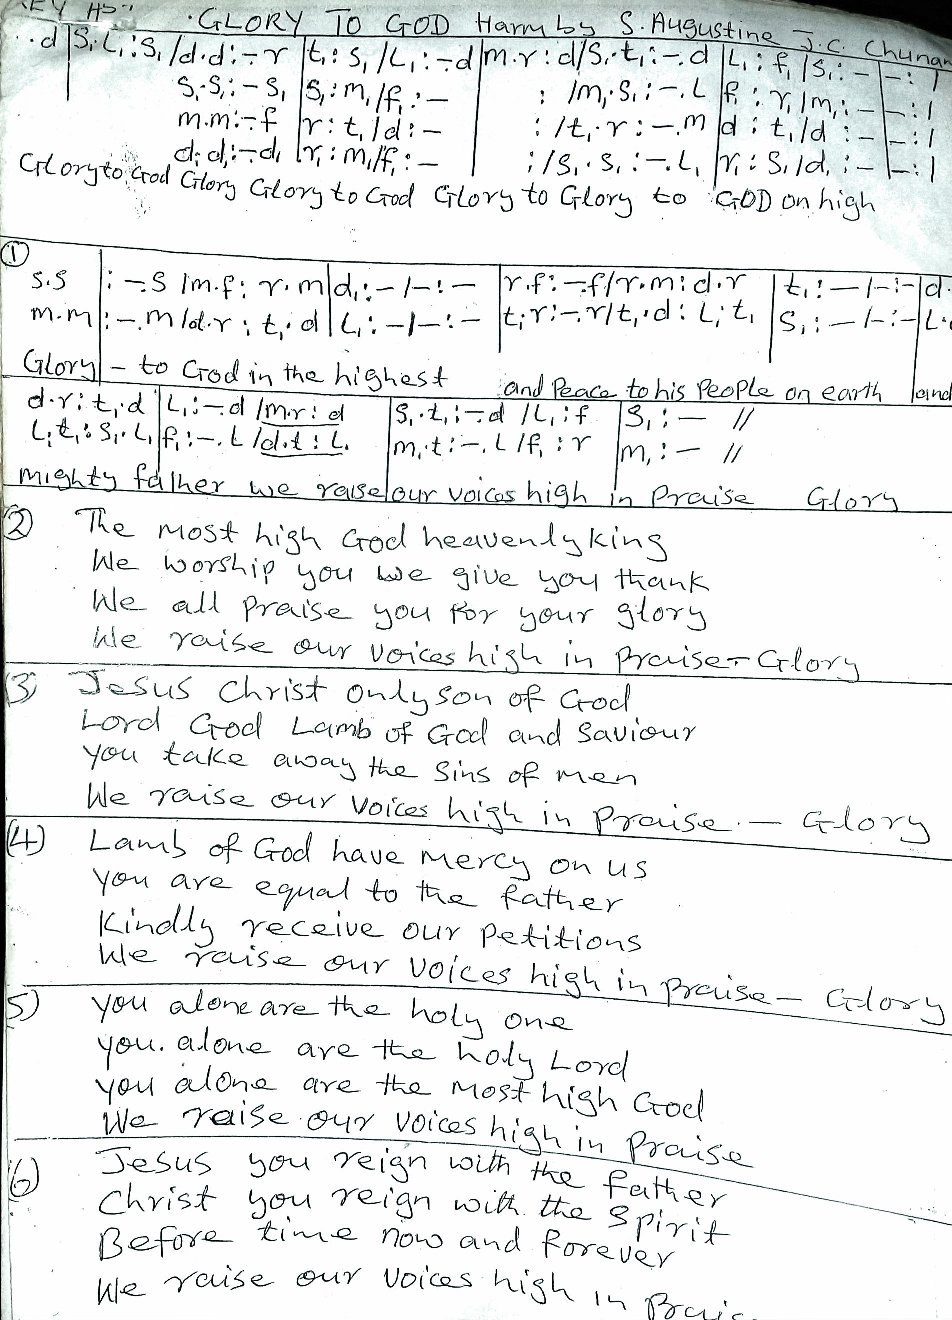 KEY
GLORY TO GOD Harm by S. Augustine J.C. Chunan
..d|S₁.L₁:S₁/d.d:-r|t₁:S₁/L₁:-d|m.r:d/S₁.t₁:-.d|L₁:f₁/S₁:-|-:|
S₁.S₁:-S₁|S₁:m₁/f₁:-| :/m₁.S₁:-.L|f₁:r₁/m₁:-|-:|
m.m:-f|r:t₁/d:-| :/t₁.r:-.m|d:t₁/d:-|-:|
d.d:-d₁|r₁:m₁/f₁:-| :/S₁.S₁:-.L₁|r₁:S₁/d₁:-|-:|
Glory to God Glory Glory to God Glory to Glory to GOD on high
①
s.s|:-.S/m.f:r.m|d₁:-/-:-|r.f:-.f/r.m:d.r|t₁:-/-:-|d.
m.m|:-.m/d.r:t₁.d|L₁:-/-:-|t₁.r:-.r/t₁.d:L₁.t₁|S₁:-/-:-|L.
Glory - to God in the highest and Peace to his People on earth and
d.r:t₁.d|L₁:-.d/m.r:d|S₁.t₁:-.d/L₁:f|S₁:- //
L₁.t₁:S₁.L₁|f₁:-.L/d.t:L.|m₁.t:-.L/f₁:r|m₁:- //
mighty father we raise our voices high in Praise Glory
② The most high God heavenly king
We worship you we give you thank
We all praise you for your glory
We raise our voices high in praise - Glory
3) Jesus Christ only son of God
Lord God Lamb of God and Saviour
you take away the sins of men
We raise our voices high in praise. - Glory
(4) Lamb of God have mercy on us
you are equal to the father
Kindly receive our petitions
We raise our voices high in praise - Glory
5) you alone are the holy one
you. alone are the holy Lord
you alone are the most high God
We raise our voices high in Praise
6) Jesus you reign with the father
Christ you reign with the spirit
Before time now and forever
We raise our voices high in